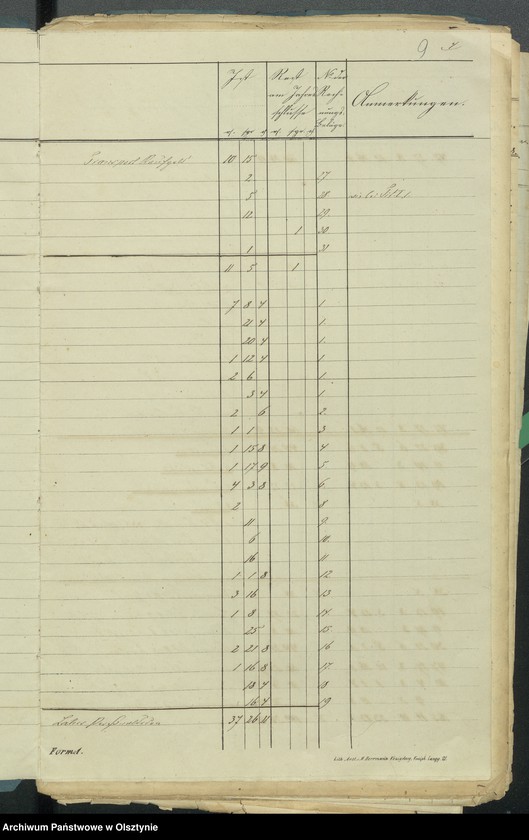 9
Ist
Rest am Jahresschlusse
No der Rechnungs Beläge
Anmerkungen.
Transport 10 15
2 27
5 28
12 29
1 30
1 31
11 5 1
7 8 4 1.
21 4 1.
20 4 1.
1 12 4 1.
2 6 1.
3 4 1
2 6 2.
1 1 3
1 15 8 4
1 17 9 5
4 3 8 6.
2 8
11 9.
6 10.
16 11
1 1 8 12
3 16 13
1 8 14.
25 15.
2 21 8 16
1 16 8 17.
18 4 18
16 4 19
Latus 37 26 11
Format.
Archiwum Państwowe w Olsztynie